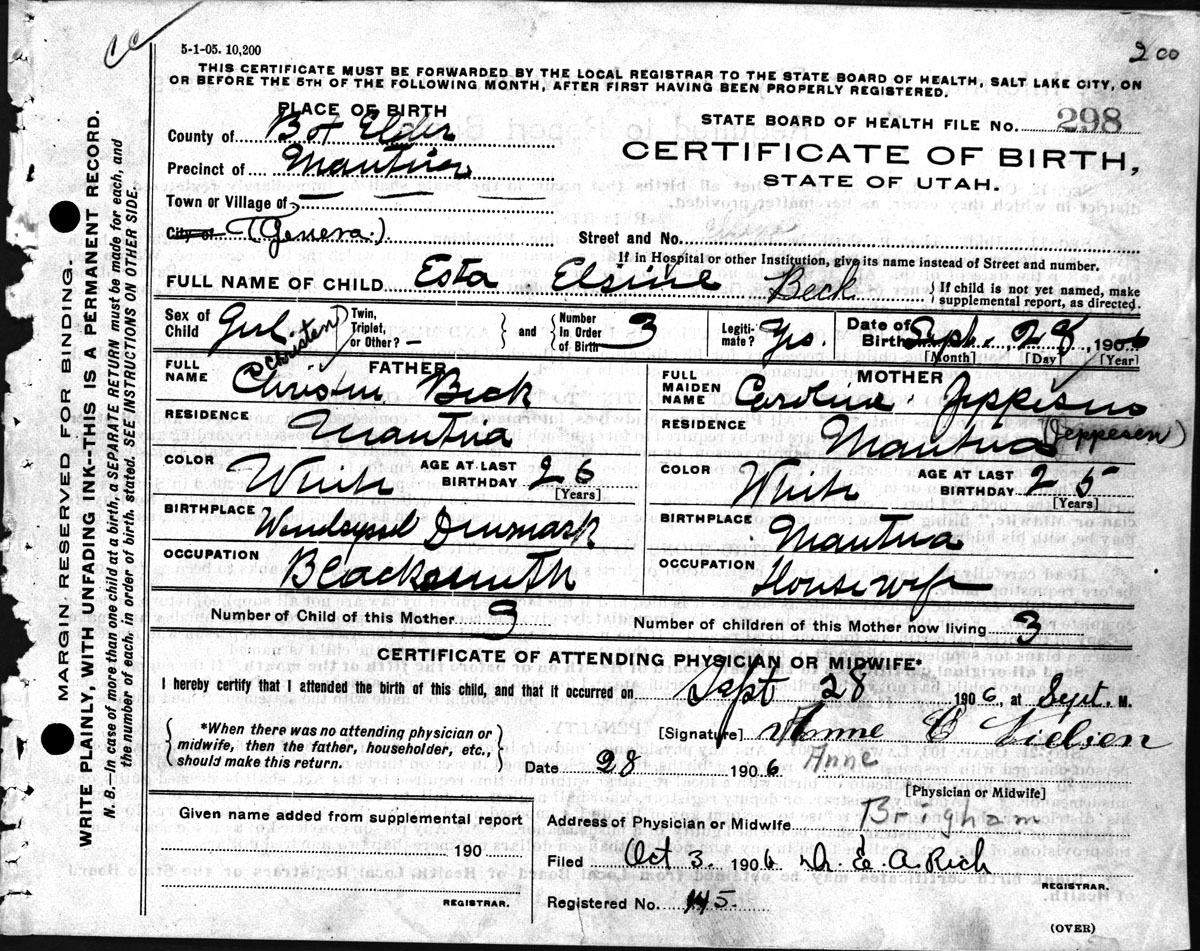 5-1-05. 10,200
200
THIS CERTIFICATE MUST BE FORWARDED BY THE LOCAL REGISTRAR TO THE STATE BOARD OF HEALTH, SALT LAKE CITY, ON
OR BEFORE THE 5TH OF THE FOLLOWING MONTH, AFTER FIRST HAVING BEEN PROPERLY REGISTERED.
MARGIN RESERVED FOR BINDING.
WRITE PLAINLY, WITH UNFADING INK--THIS IS A PERMANENT RECORD.
N. B.—In case of more than one child at a birth, a SEPARATE RETURN must be made for each, and
the number of each, in order of birth, stated. SEE INSTRUCTIONS ON OTHER SIDE.
PLACE OF BIRTH
County of Bx Elder
Precinct of Mantua
Town or Village of
City of (Geneva.)
STATE BOARD OF HEALTH FILE NO. 298
CERTIFICATE OF BIRTH,
STATE OF UTAH.
Street and No.
If in Hospital or other Institution, give its name instead of Street and number.
FULL NAME OF CHILD Esta Elsine Beck
If child is not yet named, make
supplemental report, as directed.
Sex of Child Girl
Twin, Triplet, or Other? —
and Number In Order of Birth 3
Legitimate? Yes.
Date of Birth Sept. 28, 1906
[Month] [Day] [Year]
FATHER
Christen
FULL NAME Christen Beck
RESIDENCE Mantua
COLOR White AGE AT LAST BIRTHDAY 26
[Years]
BIRTHPLACE Denmark
OCCUPATION Blacksmith
MOTHER
FULL MAIDEN NAME Caroline
(Jeppesen)
RESIDENCE Mantua
COLOR White AGE AT LAST BIRTHDAY 25
[Years]
BIRTHPLACE Mantua
OCCUPATION Housewife
Number of Child of this Mother 3 Number of children of this Mother now living 3
CERTIFICATE OF ATTENDING PHYSICIAN OR MIDWIFE*
I hereby certify that I attended the birth of this child, and that it occurred on Sept 28 1906, at Sept. M.
*When there was no attending physician or
midwife, then the father, householder, etc.,
should make this return.
[Signature] Anne C Nielsen
Date 28 1906 Anne
[Physician or Midwife]
Given name added from supplemental report
190
REGISTRAR.
Address of Physician or Midwife Brigham
Filed Oct 3. 1906 Dr. E. A. Rich
REGISTRAR.
Registered No. 145.
(OVER)